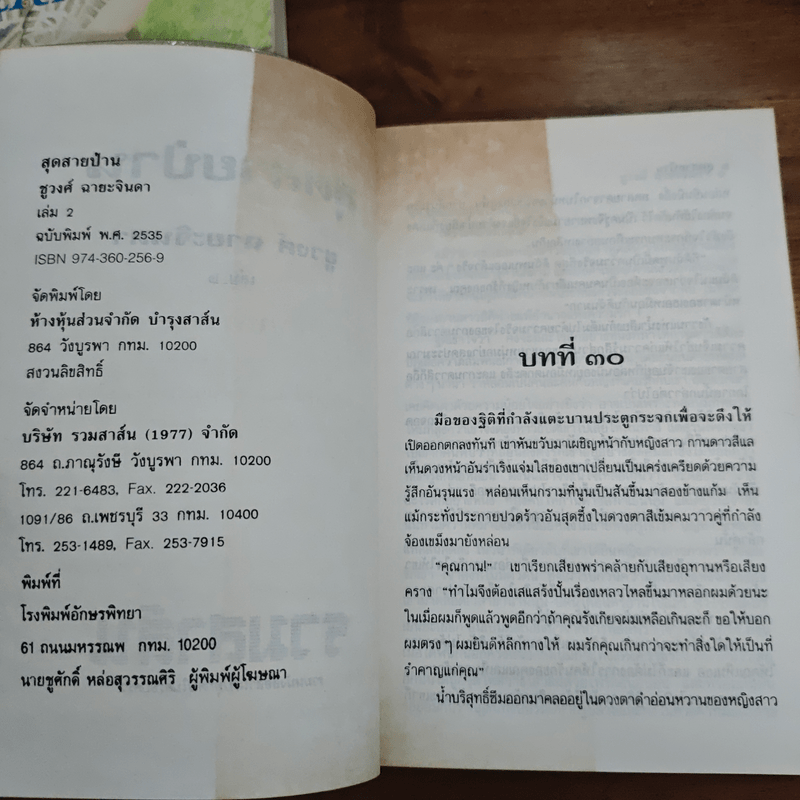 สุดสายป่าน
ชูวงศ์ ฉายะจินดา
เล่ม 2
ฉบับพิมพ์ พ.ศ. 2535
ISBN 974-360-256-9
จัดพิมพ์โดย
ห้างหุ้นส่วนจำกัด บำรุงสาส์น
864 วังบูรพา กทม. 10200
สงวนลิขสิทธิ์
จัดจำหน่ายโดย
บริษัท รวมสาส์น (1977) จำกัด
864 ถ.ภาณุรังษี วังบูรพา กทม. 10200
โทร. 221-6483, Fax. 222-2036
1091/86 ถ.เพชรบุรี 33 กทม. 10400
โทร. 253-1489, Fax. 253-7915
พิมพ์ที่
โรงพิมพ์อักษรพิทยา
61 ถนนมหรรณพ กทม. 10200
นายชูศักดิ์ หล่อสุวรรณศิริ ผู้พิมพ์ผู้โฆษณา
บทที่ ๓๐
มือของฐิติที่กำลังแตะบานประตูกระจกเพื่อจะดึงให้
เปิดออกตกลงทันที เขาหันขวับมาเผชิญหน้ากับหญิงสาว กานดาวสีแล
เห็นดวงหน้าอันร่าเริงแจ่มใสของเขาเปลี่ยนเป็นเคร่งเครียดด้วยความ
รู้สึกอันรุนแรง หล่อนเห็นกรามที่นูนเป็นสันขึ้นมาสองข้างแก้ม เห็น
แม้กระทั่งประกายปวดร้าวอันสุดซึ้งในดวงตาสีเข้มคมวาวคู่ที่กำลัง
จ้องเขม็งมายังหล่อน
“คุณกาน!” เขาเรียกเสียงพร่าคล้ายกับเสียงอุทานหรือเสียง
คราง “ทำไมจึงต้องเสแสร้งปั้นเรื่องเหลวไหลขึ้นมาหลอกผมด้วยนะ
ในเมื่อผมก็พูดแล้วพูดอีกว่าถ้าคุณรังเกียจผมเหลือเกินละก็ ขอให้บอก
ผมตรง ๆ ผมยินดีหลีกทางให้ ผมรักคุณเกินกว่าจะทำสิ่งใดให้เป็นที่
รำคาญแก่คุณ”
น้ำบริสุทธิ์ซึมออกมาคลออยู่ในดวงตาดำอ่อนหวานของหญิงสาว